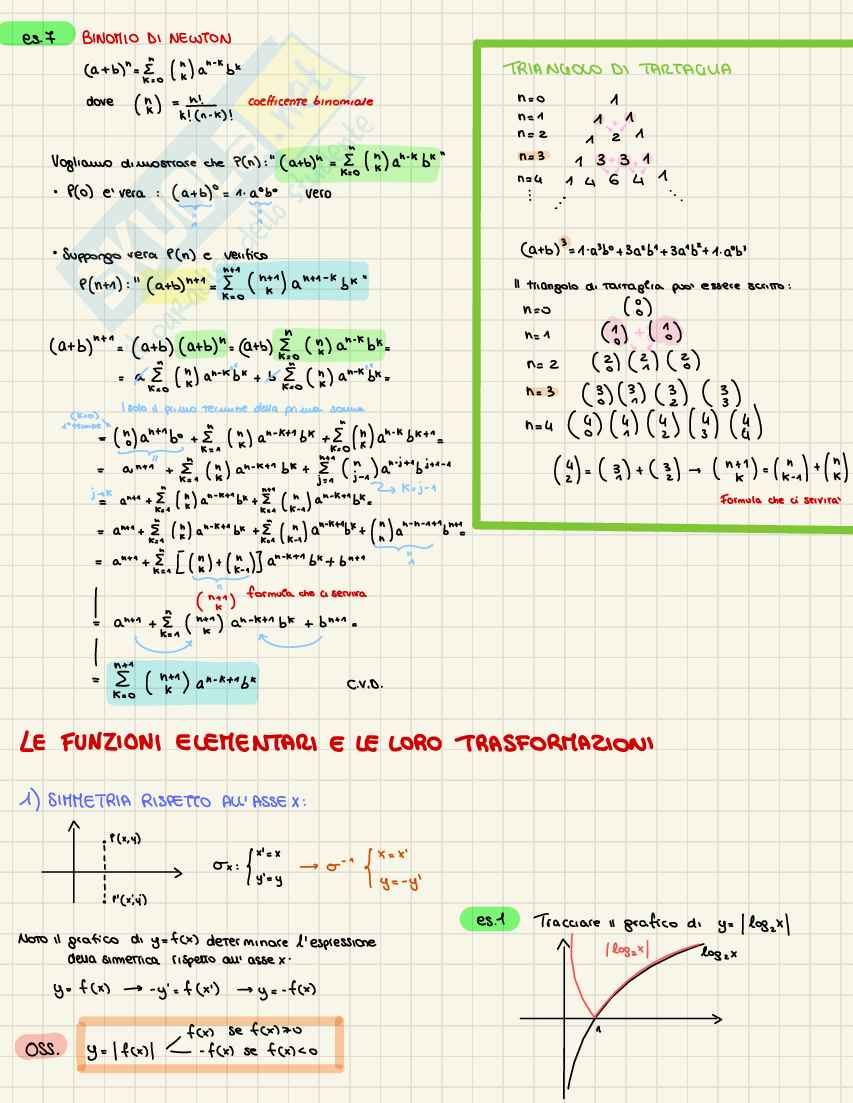 es.7 BINOMIO DI NEWTON
(a+b)ⁿ = Σ_{k=0}^{n} (n k) a^{n-k} b^k
dove (n k) = n!/k!(n-k)! coefficente binomiale
Vogliamo dimostrare che P(n): "(a+b)ⁿ = Σ_{k=0}^{n} (n k) a^{n-k} b^k"
• P(0) e' vera : (a+b)⁰ = 1· a⁰b⁰ vero
• Suppongo vera P(n) e verifico
P(n+1): "(a+b)^{n+1} = Σ_{k=0}^{n+1} (n+1 k) a^{n+1-k} b^k"
(a+b)^{n+1} = (a+b) (a+b)ⁿ = (a+b) Σ_{k=0}^{n} (n k) a^{n-k} b^k =
= a Σ_{k=0}^{n} (n k) a^{n-k} b^k + b Σ_{k=0}^{n} (n k) a^{n-k} b^k =
Isolo il primo termine della prima somma
(k=0)
1° termine
= (n 0) a^{n+1} b⁰ + Σ_{k=1}^{n} (n k) a^{n-k+1} b^k + Σ_{k=0}^{n} (n k) a^{n-k} b^{k+1} =
= a^{n+1} + Σ_{k=1}^{n} (n k) a^{n-k+1} b^k + Σ_{j=1}^{n+1} (n j-1) a^{n-j+1} b^{j+1-1}
j→k
→ k=j-1
= a^{n+1} + Σ_{k=1}^{n} (n k) a^{n-k+1} b^k + Σ_{k=1}^{n+1} (n k-1) a^{n-k+1} b^k =
= a^{n+1} + Σ_{k=1}^{n} (n k) a^{n-k+1} b^k + Σ_{k=1}^{n} (n k-1) a^{n-k+1} b^k + (n n) a^{n-n-1+1} b^{n+1} =
1
= a^{n+1} + Σ_{k=1}^{n} [(n k) + (n k-1)] a^{n-k+1} b^k + b^{n+1}
(n+1 k) formula che ci servira
= a^{n+1} + Σ_{k=1}^{n} (n+1 k) a^{n-k+1} b^k + b^{n+1} =
= Σ_{k=0}^{n+1} (n+1 k) a^{n-k+1} b^k C.V.D.
TRIANGOLO DI TARTAGLIA
n=0 1
n=1 1 1
n=2 1 2 1
n=3 1 3 3 1
n=4 1 4 6 4 1
(a+b)³ = 1·a³b⁰ + 3a²b¹ + 3a¹b² + 1·a⁰b³
Il triangolo di tartaglia puo' essere scritto:
n=0 (0 0)
n=1 (1 0) + (1 0)
n=2 (2 0) (2 1) (2 0)
n=3 (3 0) (3 1) (3 2) (3 3)
n=4 (4 0) (4 1) (4 2) (4 3) (4 4)
(4 2) = (3 1) + (3 2) → (n+1 k) = (n k-1) + (n k)
Formula che ci servira'
LE FUNZIONI ELEMENTARI E LE LORO TRASFORMAZIONI
1) SIMMETRIA RISPETTO ALL'ASSE X:
P(x,y)
P'(x',y')
σx: { x'=x → σ⁻¹ { x=x'
y'=y y=-y'
Noto il grafico di y=f(x) determinare l'espressione
della simmetrica rispetto all'asse x·
y=f(x) → -y'=f(x') → y=-f(x)
OSS. y=|f(x)| f(x) se f(x)≥0
-f(x) se f(x)<0
es.1 Tracciare il grafico di y=|log₂x|
|log₂x|
log₂x
1